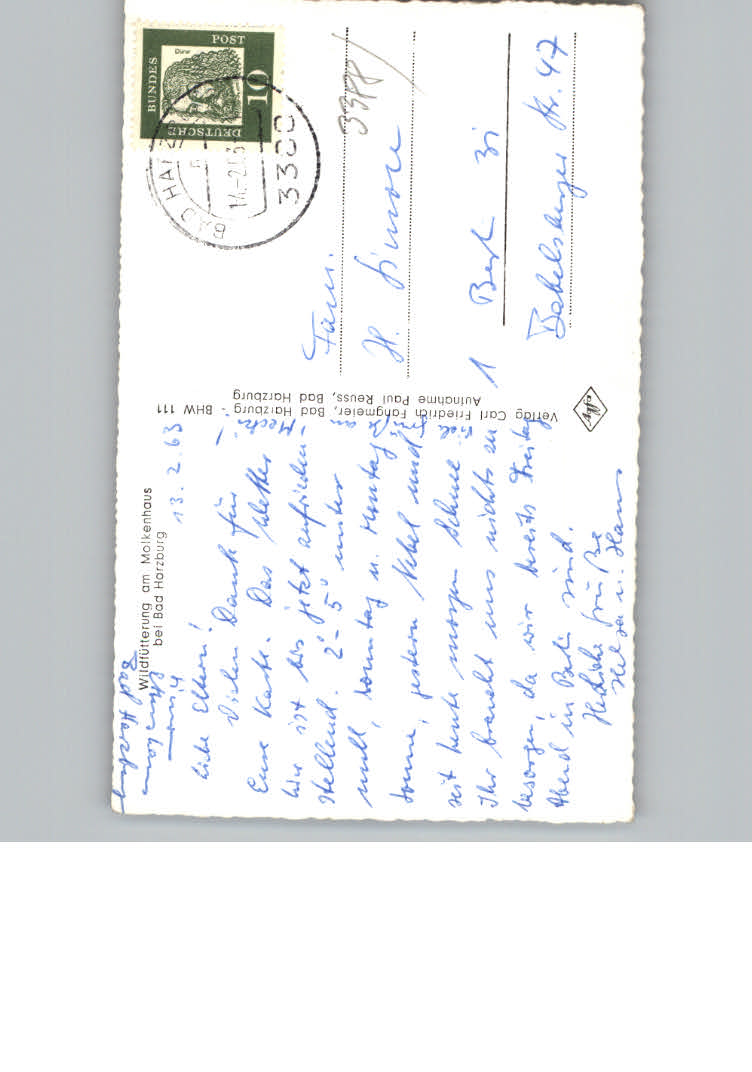 Wildfütterung am Molkenhaus
bei Bad Harzburg
Bad Harzburg
13.2.63
Liebe Eltern!
Vielen Dank für
Eure Karte. Das Wetter
hier ist bis jetzt zufrieden-
stellend. 2-5° unter
null, Sonntag u. Montag
Sonne, gestern Nebel und
seit heute morgen Schnee
Ihr braucht uns nichts zu
besorgen, da wir bereits Freitag
Abend in Berlin sind.
Herzliche Grüße
Helga u. Hans
Verlag Carl Friedrich Fangmeier, Bad Harzburg - BHW 111
Aufnahme Paul Reuss, Bad Harzburg
Agfa
DEUTSCHE
BUNDES
POST
Dürer
10
BAD HARZBURG
3300
3388
Fam.
H. Simon
1 Berlin 31
Babelsberger Str. 47